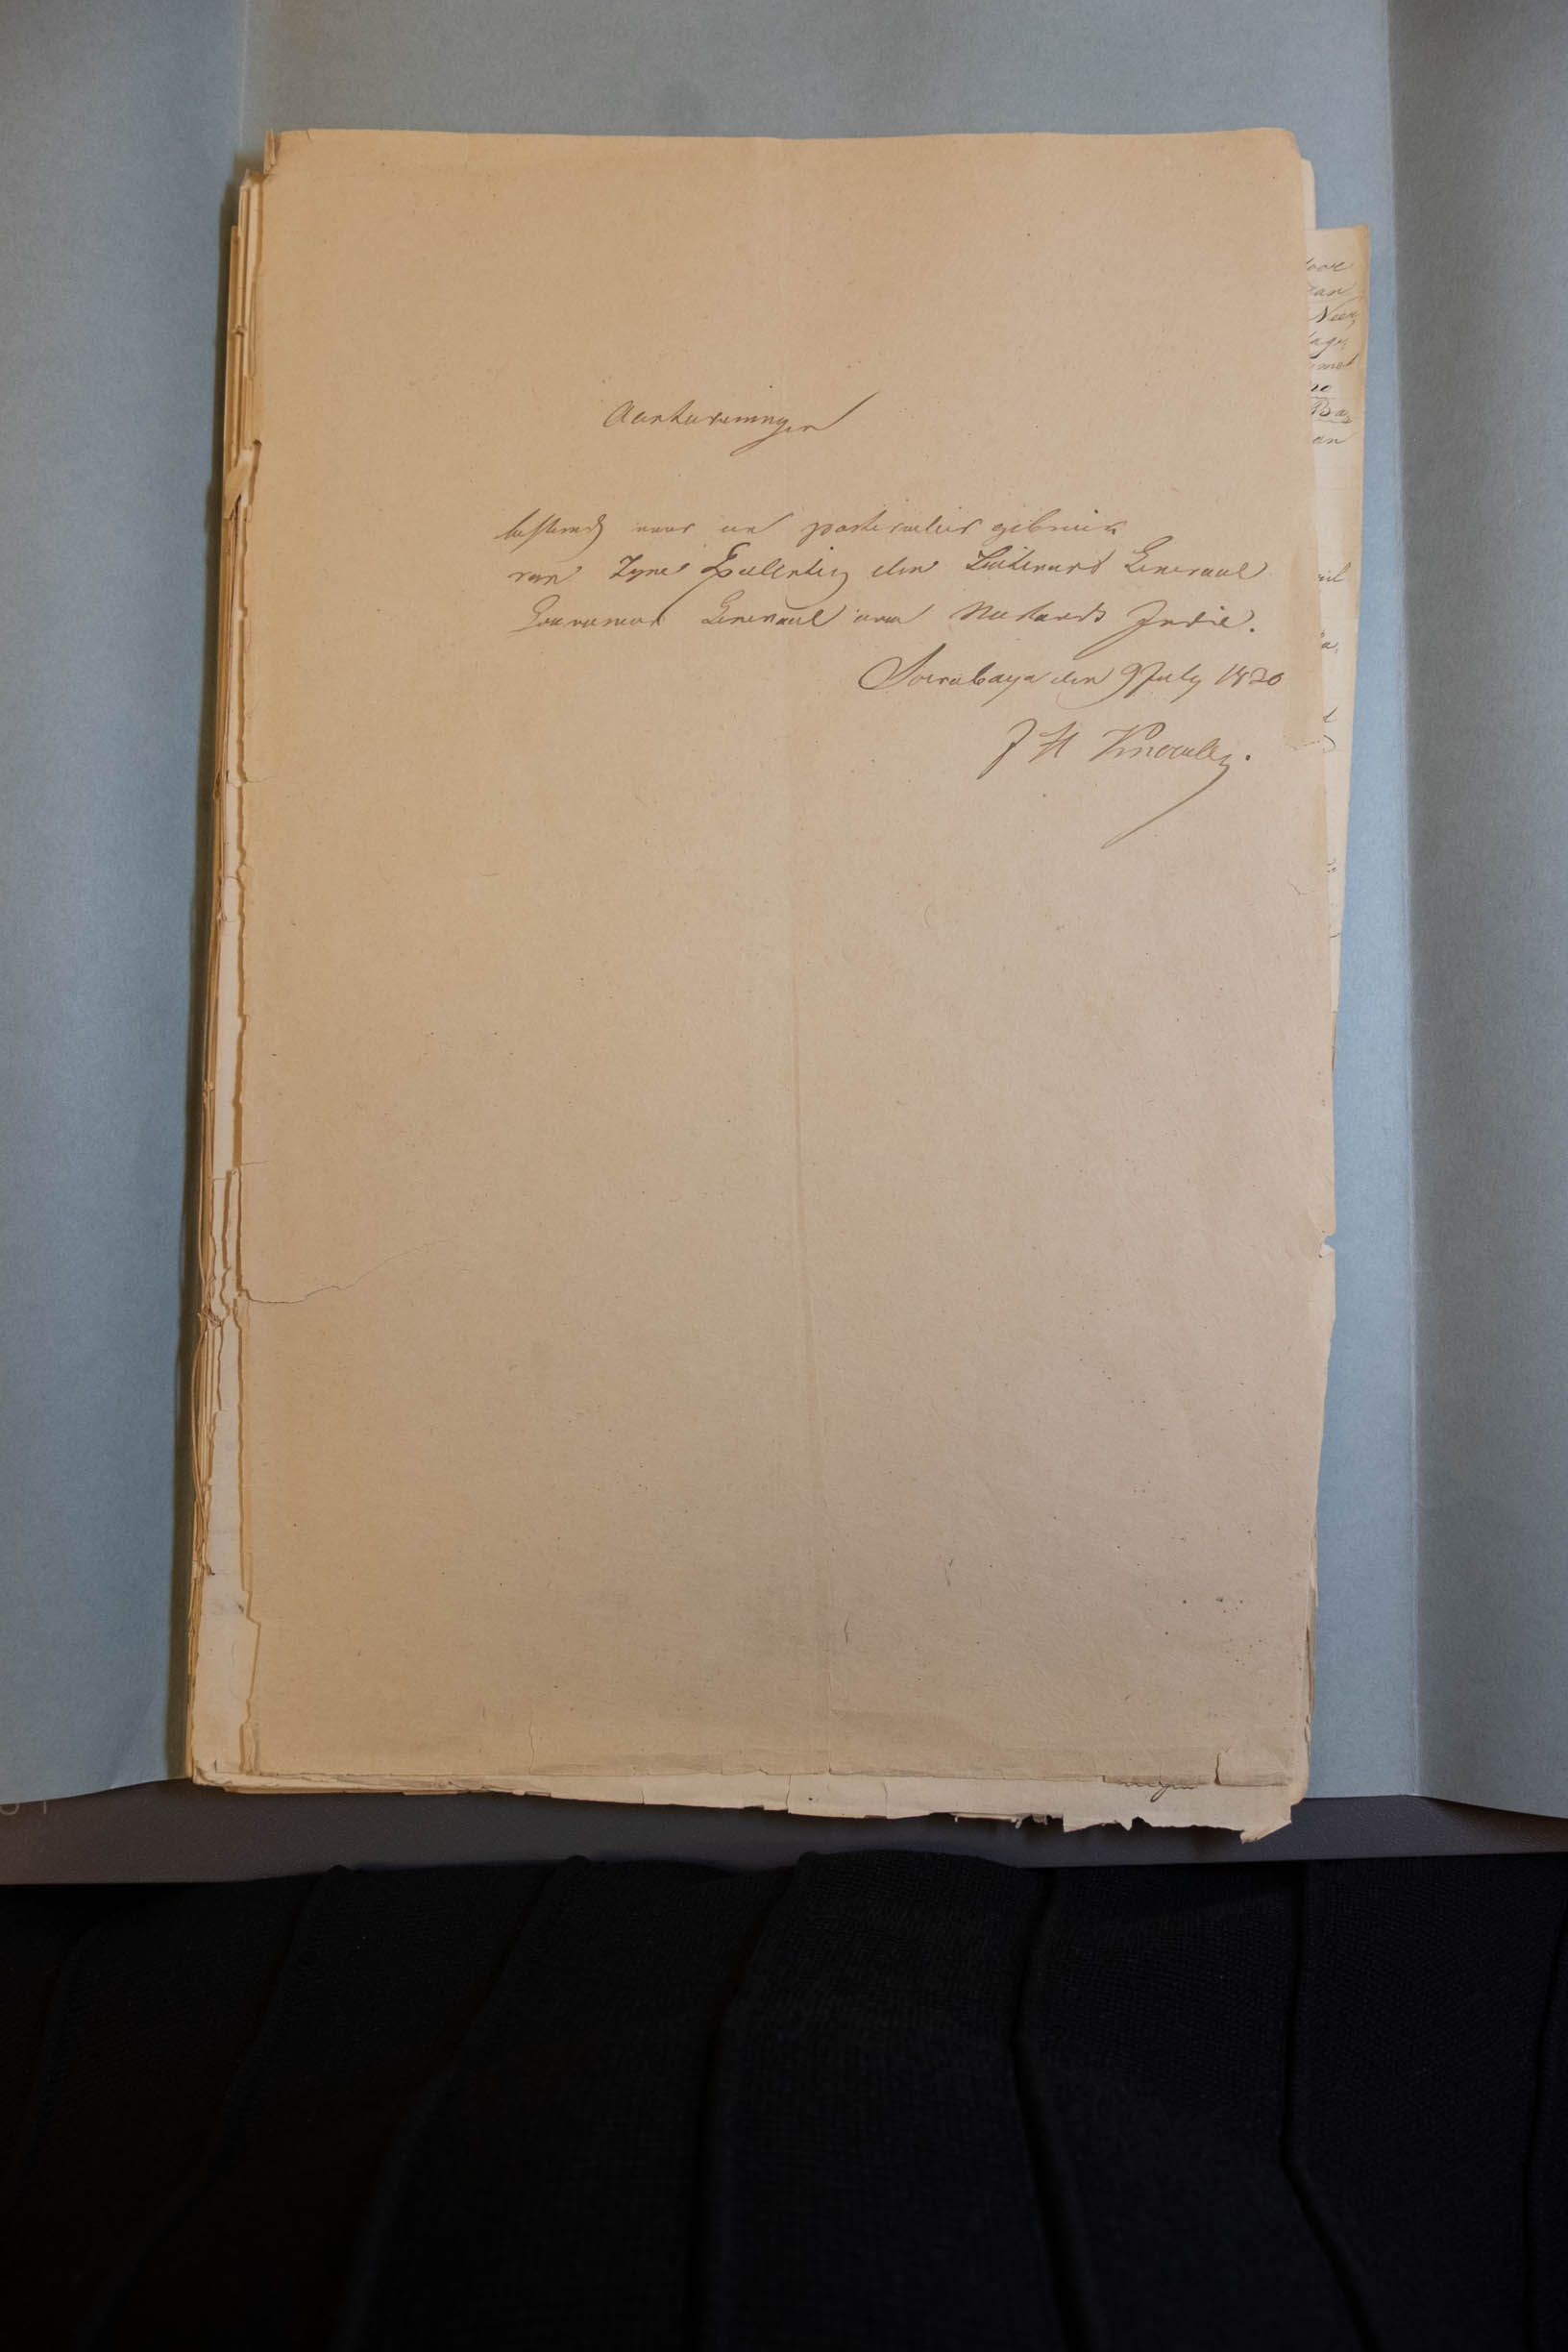 Aantekeningen
bestemd voor een partikulier gebruik
van Zyne Excellentie den Luitenant Generaal
Gouverneur Generaal over Neerlands Indië.
Soerabaya den 9 July 1830
J H
door
van
Neer,
met
Ba,
an